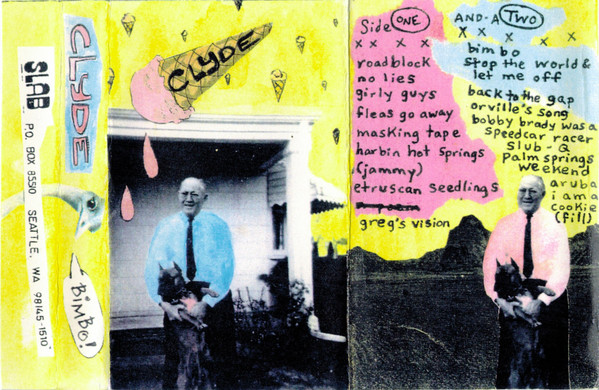 SLAB
P.O. BOX 85510 SEATTLE, WA 98145-1510
CLYDE
BIMBO!
CLYDE
Side ONE
x x x x x
roadblock
no lies
girly guys
fleas go away
masking tape
harbin hot springs
(jammy)
etruscan seedlings
greg's vision
AND-A TWO
x x x x x
bimbo
stop the world &
let me off
back to the gap
orville's song
bobby brady was a
speedcar racer
slub-Q
palm springs
weekend
aruba
i am a
cookie
(fill)